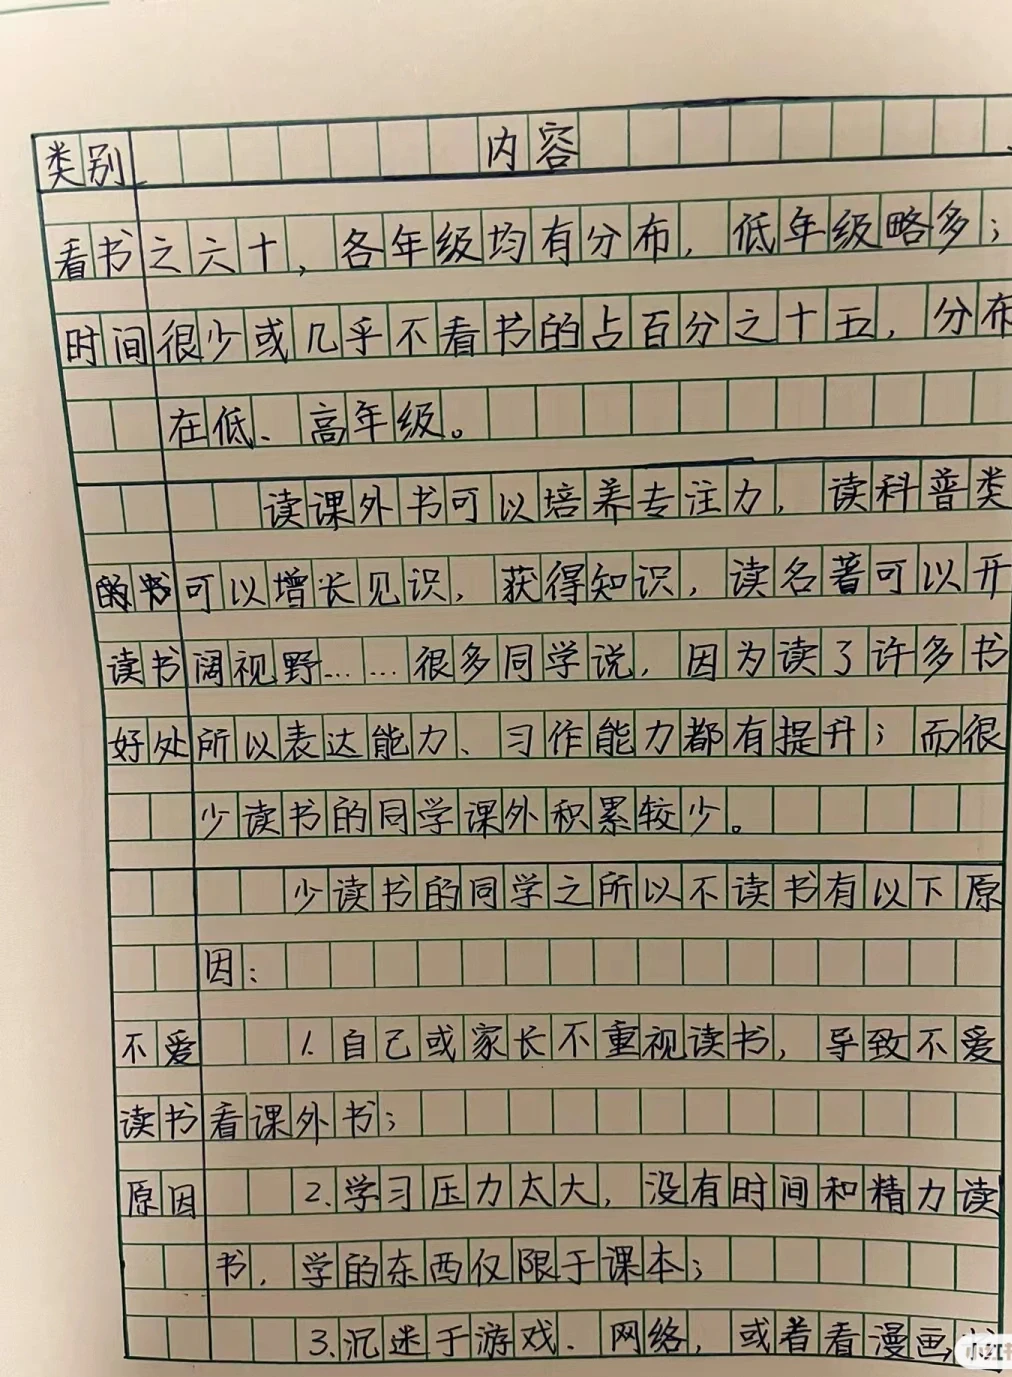 类别 内容
看书之六十，各年级均有分布，低年级略多；
时间很少或几乎不看书的占百分之十五，分布
在低、高年级。
读课外书可以培养专注力，读科普类
的书可以增长见识，获得知识，读名著可以开
读书阔视野……很多同学说，因为读了许多书
好处所以表达能力、习作能力都有提升；而很
少读书的同学课外积累较少。
少读书的同学之所以不读书有以下原
因：
不爱 1.自己或家长不重视读书，导致不爱
读书看课外书；
原因 2.学习压力太大，没有时间和精力读
书，学的东西仅限于课本；
3.沉迷于游戏．网络，或着看漫画，